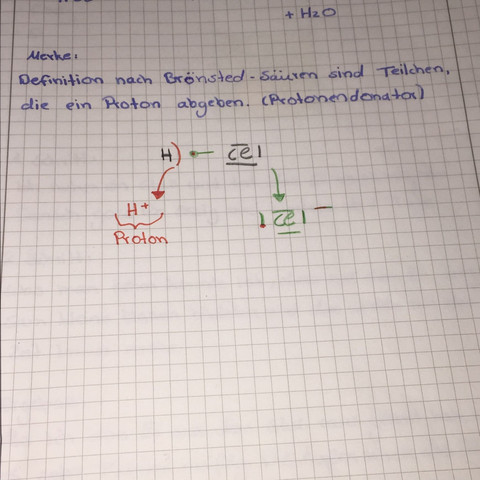 + H2O
Merke:
Definition nach Brönsted-Säuren sind Teilchen,
die ein Proton abgeben. (Protonendonator)
H) Cl|
H+ |Cl| −
Proton